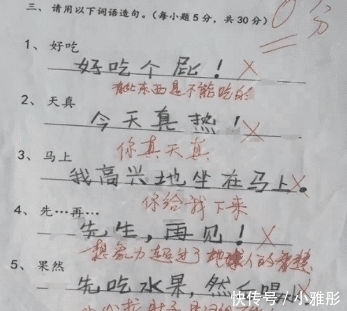 三、请用以下词语造句。(每小题5分,共30分)
0分
1、好吃
好吃个屁!
有些东西是不能吃的
2、天真
今天真热!
你真天真
3、马上
我高兴地坐在马上。
你给我下来
4、先…再…
先生,再见!
想象力超过了地球人的智慧
5、果然
先吃水果,然后喝
快传号/小雅彤